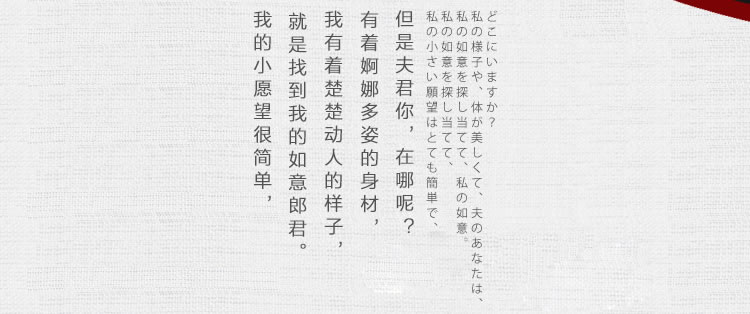 我的小愿望很简单，
就是找到我的如意郎君。
我有着楚楚动人的样子，
有着婀娜多姿的身材，
但是夫君你，在哪呢？
私の小さい願望はとても簡単で、
私の如意を探し当てて、
私の如意を探し当てて、私の如意。
私の様子や、体が美しくて、夫のあなたは、
どこにいますか？